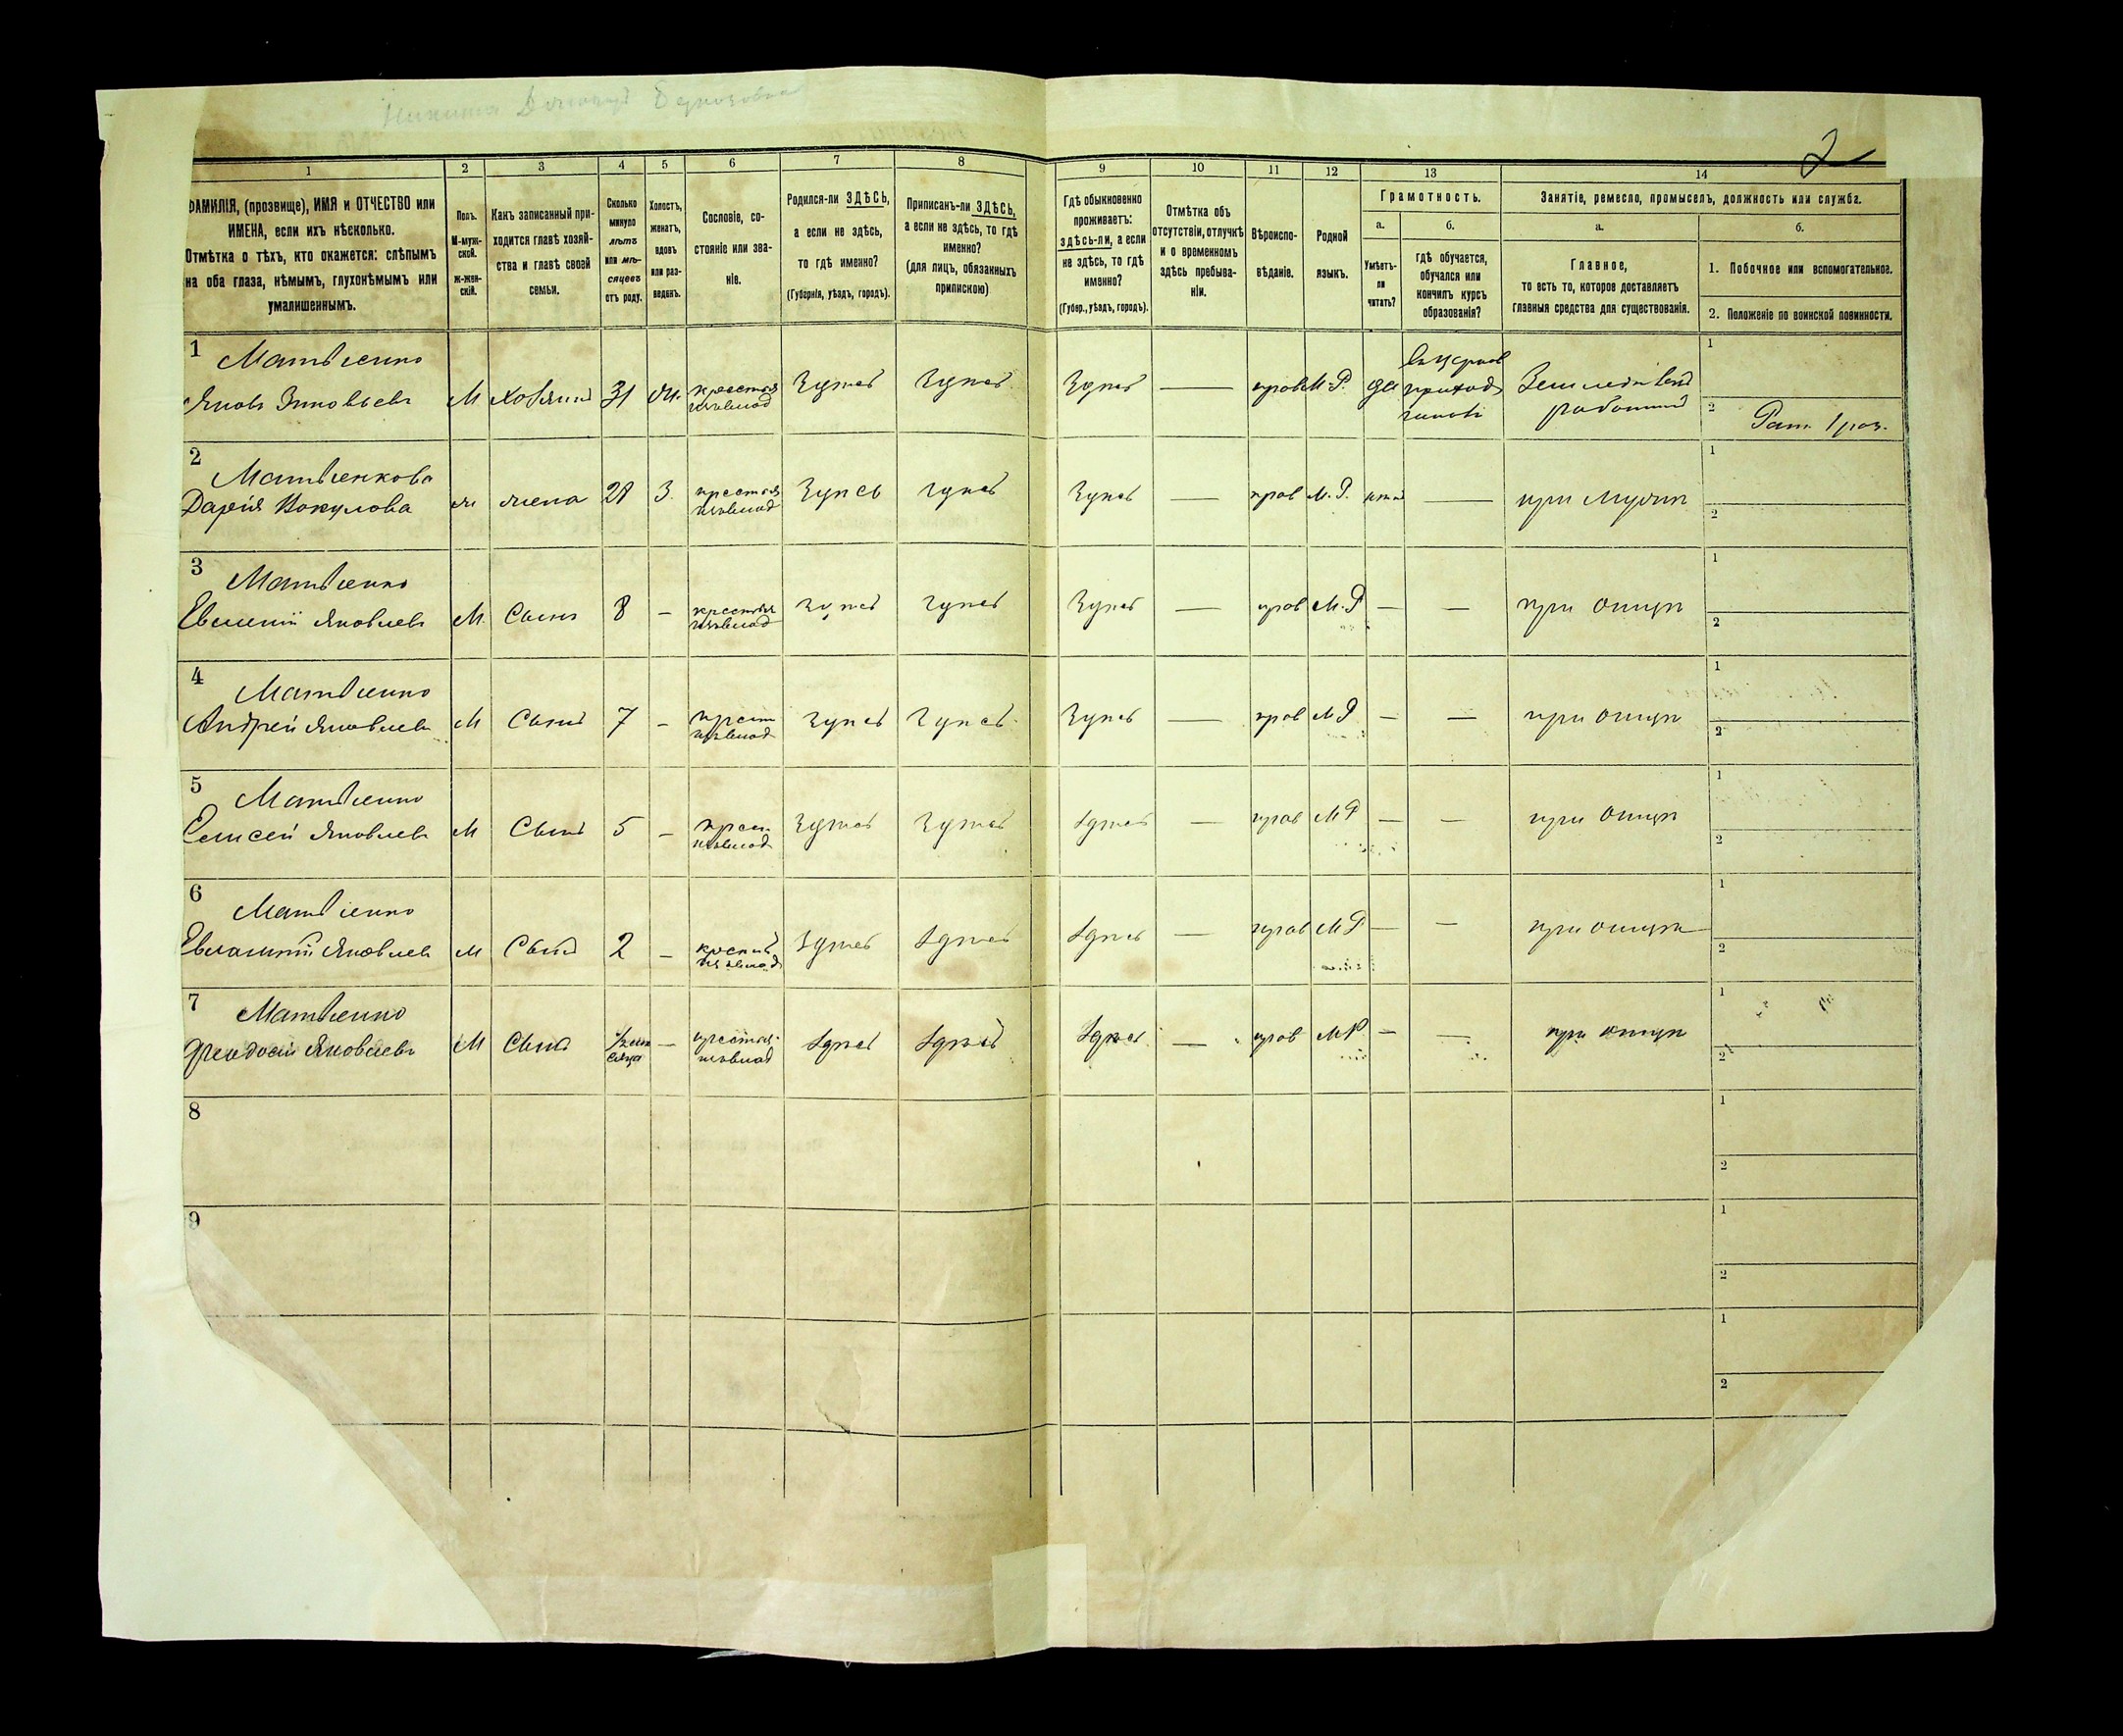 Никита
2
1 2 3 4 5 6 7 8 9 10 11 12 13 14
ФАМИЛІЯ, (прозвище), ИМЯ и ОТЧЕСТВО или
ИМЕНА, если ихъ нѣсколько.
Отмѣтка о тѣхъ, кто окажется: слѣпымъ
на оба глаза, нѣмымъ, глухонѣмымъ или
умалишеннымъ.
Полъ.
М-муж-
ской.
ж-жен-
скій.
Какъ записанный при-
ходится главѣ хозяй-
ства и главѣ своей
семьи.
Сколько
минуло
лѣтъ
или мѣ-
сяцевъ
отъ роду.
Холостъ,
женатъ,
вдовъ
или раз-
веденъ.
Сословіе, со-
стояніе или зва-
ніе.
Родился-ли ЗДѢСЬ,
а если не здѣсь,
то гдѣ именно?
(Губернія, уѣздъ, городъ).
Приписанъ-ли ЗДѢСЬ,
а если не здѣсь, то гдѣ
именно?
(для лицъ, обязанныхъ
припискою)
Гдѣ обыкновенно
проживаетъ:
здѣсь-ли, а если
не здѣсь, то гдѣ
именно?
(Губер., уѣздъ, городъ).
Отмѣтка объ
отсутствіи, отлучкѣ
и о временномъ
здѣсь пребыва-
ніи.
Вѣроиспо-
вѣданіе.
Родной
языкъ.
Грамотность.
а.
Умѣетъ-
ли
читать?
б.
гдѣ обучается,
обучался или
кончилъ курсъ
образованія?
Занятіе, ремесло, промыселъ, должность или служба.
а.
Главное,
то есть то, которое доставляетъ
главныя средства для существованія.
б.
1. Побочное или вспомогательное.
2. Положеніе по воинской повинности.
1
Матвіенко
Яковъ Зиновьевъ
М
хозяинъ
31
ж.
здѣсь
здѣсь
здѣсь
—
прав
М.Р.
да
Земледѣліе
1
2 Рат. 1 раз.
2
Матвіенкова
Дарія Вокулова
ж
жена
28
з.
здѣсь
здѣсь
здѣсь
—
прав
М.Р.
нѣтъ
—
при мужѣ
1
2
3
Матвіенко
Евменій Яковлевъ
М
Сынъ
8
–
здѣсь
здѣсь
здѣсь
—
прав
М.Р
—
—
при отцѣ
1
2
4
Матвіенко
Андрей Яковлевъ
М
Сынъ
7
–
здѣсь
здѣсь
здѣсь
—
прав
М Р
—
—
при отцѣ
1
2
5
Матвіенко
Елисей Яковлевъ
М
Сынъ
5
–
здѣсь
здѣсь
здѣсь
—
прав
М Р
—
—
при отцѣ
1
2
6
Матвіенко
Евлампій Яковлевъ
М
Сынъ
2
–
здѣсь
здѣсь
здѣсь
—
прав
М Р
—
—
при отцѣ
1
2
7
Матвіенко
Феодосій Яковлевъ
М
Сынъ
–
здѣсь
здѣсь
здѣсь
—
прав
М Р
—
—
при отцѣ
1
2
8
1
2
9
1
2
1
2